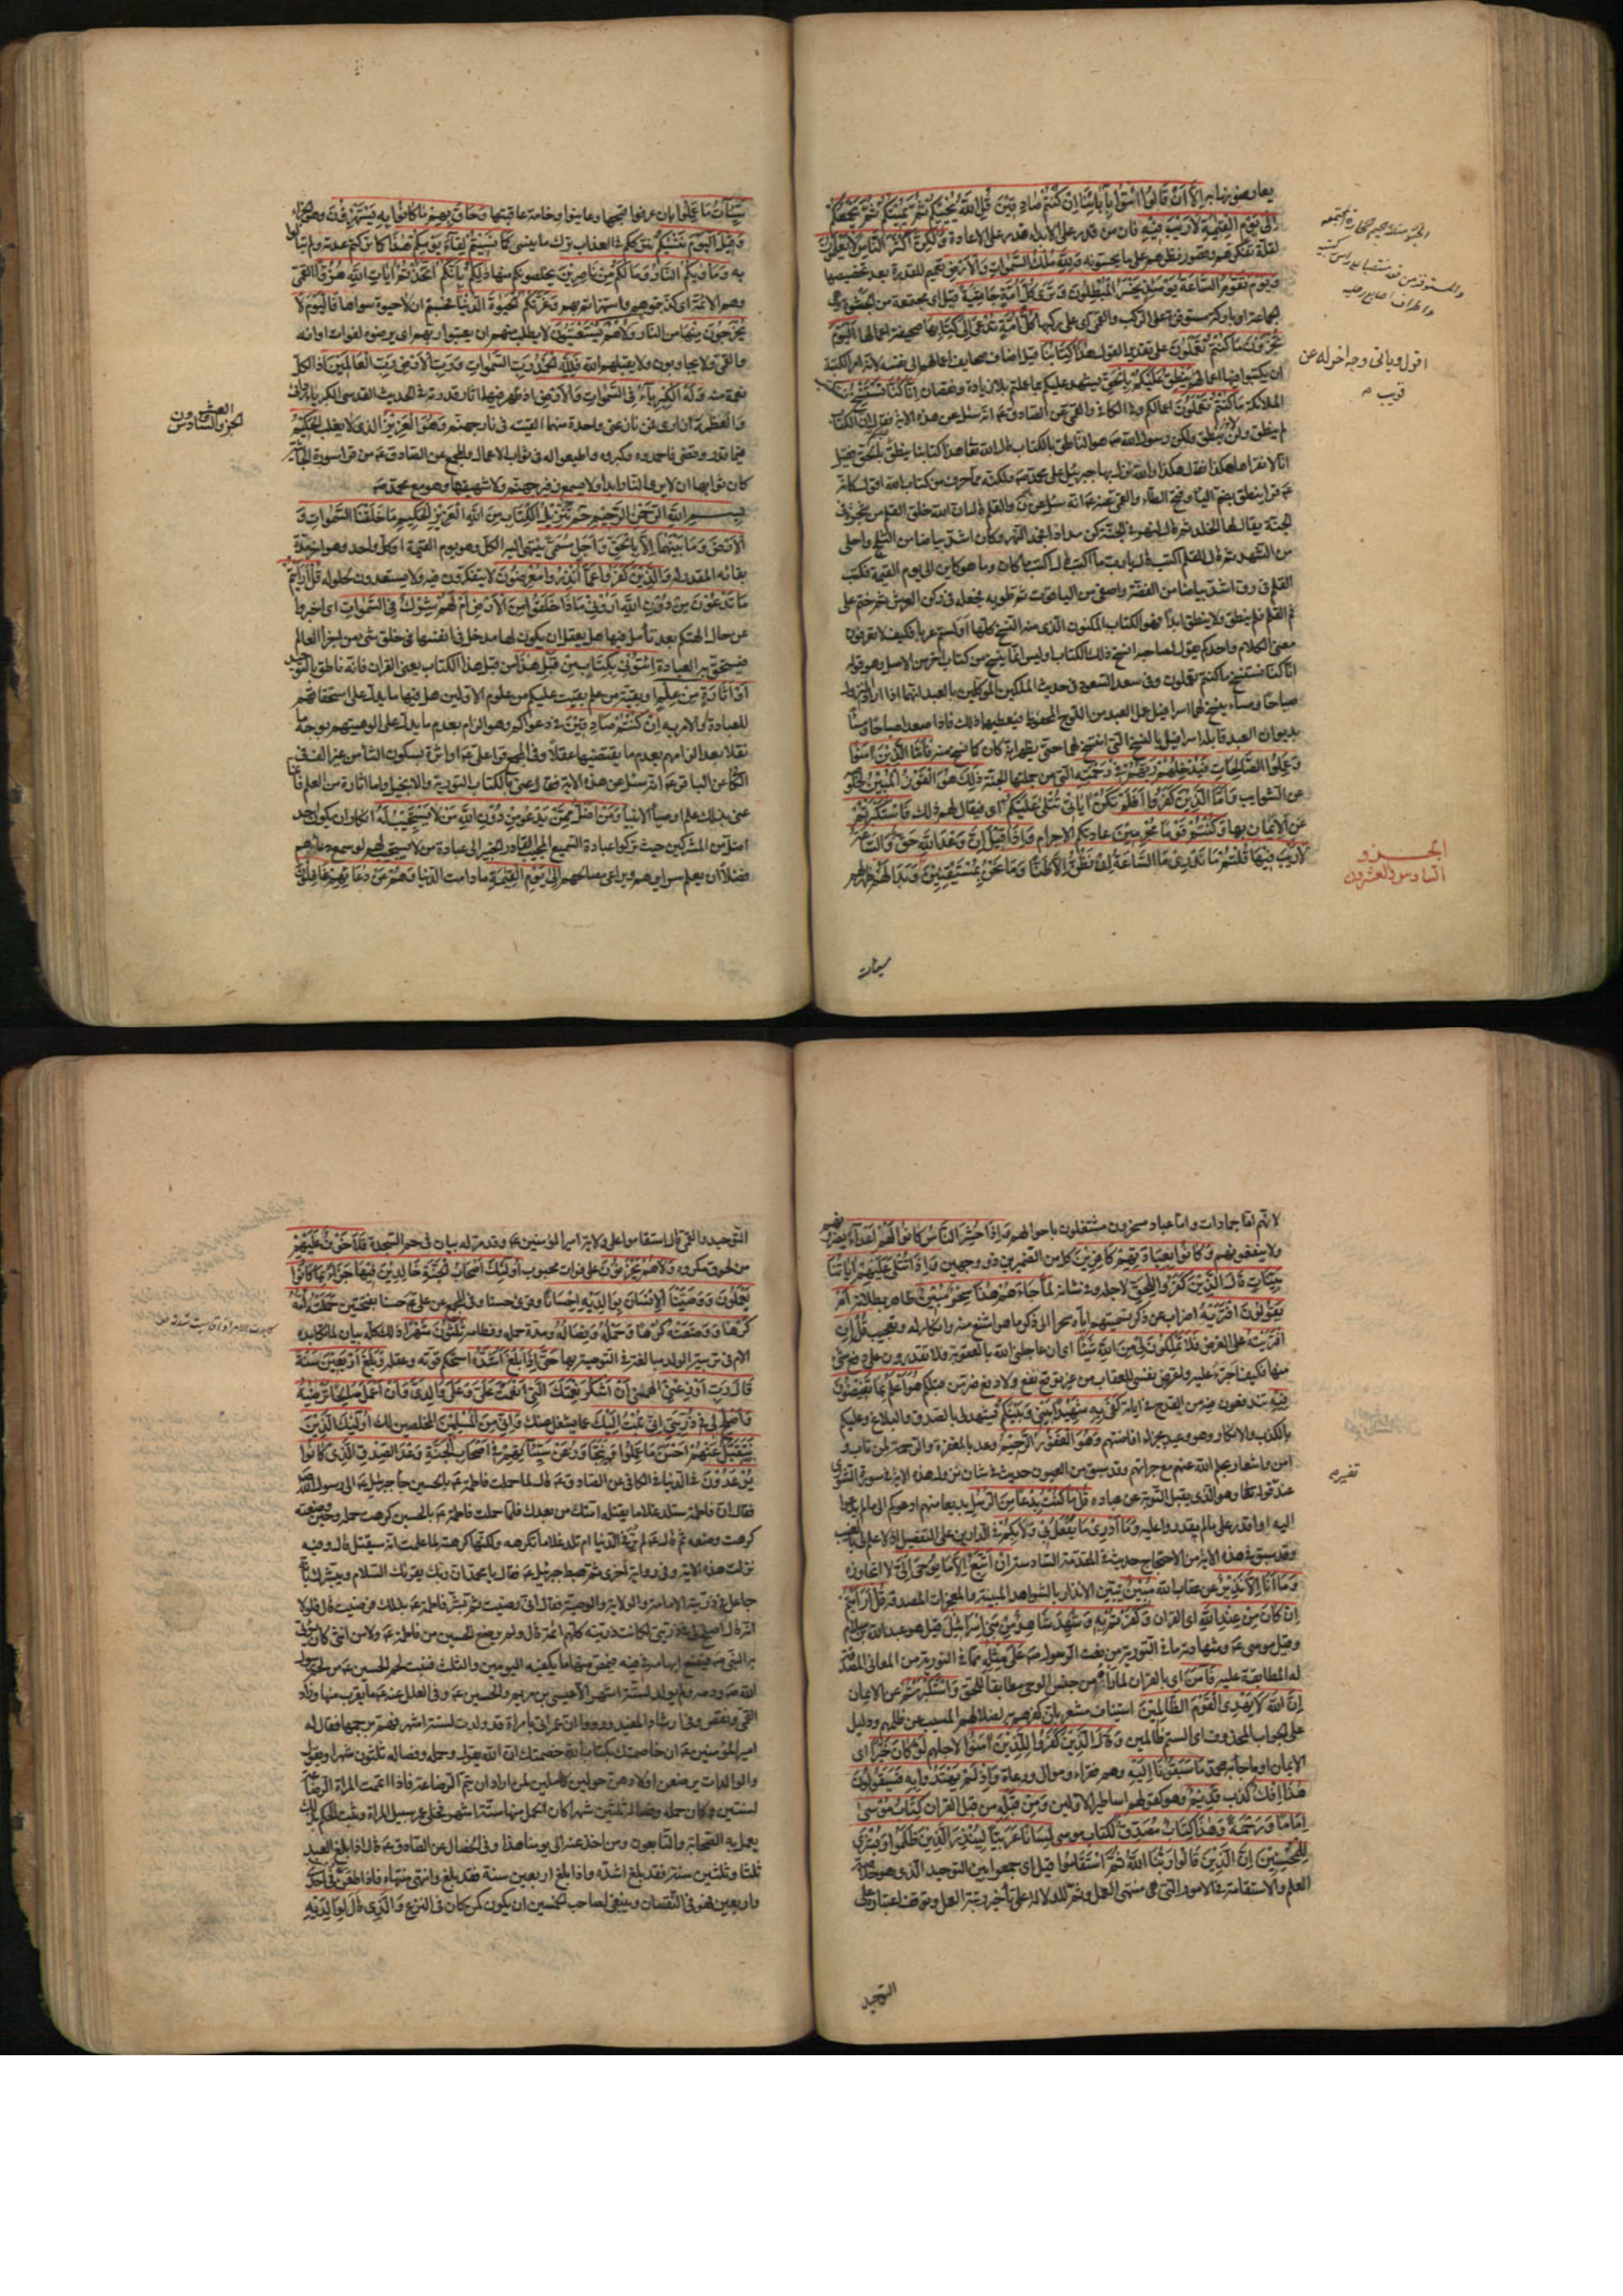 يعارضونها به إلا أن قالوا ائتوا بآبائنا إن كنتم صادقين قل الله يحييكم ثم يميتكم ثم يجمعكم
إلى يوم القيمة لا ريب فيه فان من قدر على الابداء قدر على الاعادة ولكن أكثر الناس لا يعلمون
لقلة تفكرهم وقصور نظرهم على ما يحسونه ولله ملك السموات والأرض تعميم للقدرة بعد تخصيصها
ويوم تقوم الساعة يومئذ يخسر المبطلون وترى كل أمة جاثية قيل اى مجتمعة من الجثوة وهى
الجماعة او باركة مستوفزة على الركب والقمى اى على ركبها كل أمة تدعى إلى كتابها صحيفة اعمالها اليوم
تجزون ما كنتم تعملون على تقدير القول هذا كتابنا قيل اضاف صحايف اعمالهم الى نفسه لانه امر الكتبة
ان يكتبوا فيها اعمالهم ينطق عليكم بالحق يشهد عليكم بما عملتم بلا زيادة ونقصان إنا كنا نستنسخ
الملائكة ما كنتم تعملون اعمالكم وفى الكافى والقمى عن الصادق عه انه سئل عن هذه الاية فقال ان الكتاب
لم ينطق ولن ينطق ولكن رسول الله صه هو الناطق بالكتاب قال الله تعا هذا كتابنا ينطق بالحق فقيل
انا لا نقراها هكذا فقال هكذا والله نزل بها جبرئيل على محمد صه ولكنه مما حرف من كتاب الله
عه قرا ينطق بضم الياء وفتح الطاء والقمى عنه عه انه سئل عن ن والقلم قال ان الله خلق القلم من شجرة فى
الجنة يقال لها الخلد ثم قال لنهر فى الجنة كن مدادا فجمد النهر وكان اشد بياضا من الثلج واحلى
من الشهد ثم قال للقلم اكتب قال يا رب ما اكتب قال اكتب ما كان وما هو كاين الى يوم القيمة فكتب
القلم فى رق اشد بياضا من الفضة واصفى من الياقوت ثم طواه فجعله فى ركن العرش ثم ختم على
فم القلم فلم ينطق ولا ينطق ابدا فهو الكتاب المكنون الذى منه النسخ كلها اولستم عربا فكيف لا تعرفون
معنى الكلام واحدكم يقول لصاحبه انسخ ذلك الكتاب اوليس انما ينسخ من كتاب اخر من الاصل وهو قوله
انا كنا نستنسخ ما كنتم تعملون وفى سعد السعود فى حديث الملكين الموكلين بالعبد انهما اذا ارادا النزول
صباحا ومساء ينسخ لهما اسرافيل عمل العبد من اللوح المحفوظ فيعطيهما ذلك فاذا صعدا صباحا ومساء
بديوان العبد قابله اسرافيل بالنسخ التى انتسخ لهما حتى يظهر انه كان كما نسخ منه فأما الذين آمنوا
وعملوا الصالحات فيدخلهم ربهم في رحمته التى من جملتها الجنة ذلك هو الفوز المبين لخلوه
عن الشوايب وأما الذين كفروا أفلم تكن آياتي تتلى عليكم اى فيقال لهم ذلك فاستكبرتم
عن الايمان بها وكنتم قوما مجرمين عادتكم الاجرام وإذا قيل إن وعد الله حق والساعة
لا ريب فيها قلتم ما ندري ما الساعة إن نظن إلا ظنا وما نحن بمستيقنين وبدا لهم ظهر لهم
سيئات
اقول وياتى وجه اخر له عن
قريب
الجزو
السادس والعشرون
سيئات ما عملوا بان عرفوا قبحها وعاينوا وخامة عاقبتها وحاق بهم ما كانوا به يستهزؤن وهو الجزاء
وقيل اليوم ننسيكم نترككم فى العذاب ترك ما ينسى كما نسيتم لقاء يومكم هذا كما تركتم عدته ولم تبالوا
به ومأويكم النار وما لكم من ناصرين يخلصونكم منها ذلكم بأنكم اتخذتم آيات الله هزوا القمى
وهم الائمة اى كذبتموهم واستهزاتم بهم وغرتكم الحيوة الدنيا فحسبتم ان لا حيوة سواها فاليوم لا
يخرجون منها من النار ولا هم يستعتبون لا يطلب منهم ان يعتبوا ربهم اى يرضوه لفوات اوانه
والقمى ولا يجاوبون ولا يقبلهم الله فلله الحمد رب السموات ورب الأرض رب العالمين اذ الكل
نعمة منه وله الكبرياء في السموات والأرض اذ ظهر فيهما اثار قدرته فى الحديث القدسى الكبرياء ردائى
والعظمة ازارى فمن نازعنى واحدة منهما القيته فى نار جهنم وهو العزيز الذى لا يغلب الحكيم
فيما قدر وقضى فاحمدوه وكبروه واطيعوا له فى ثواب الاعمال والمجمع عن الصادق عه من قرا سورة الجاثية
كان ثوابها ان لا يرى النار ابدا ولا يسمع زفير جهنم ولا شهيقها وهو مع محمد صه
بسم الله الرحمن الرحيم حم تنزيل الكتاب من الله العزيز الحكيم ما خلقنا السموات و
الأرض وما بينهما إلا بالحق وأجل مسمى ينتهى اليه الكل وهو يوم القيمة او كل واحد وهو اخر مدة
بقائه المقدر له والذين كفروا عما أنذروا معرضون لا يتفكرون فيه ولا يستعدون لحلوله قل أرأيتم
ما تدعون من دون الله أروني ماذا خلقوا من الأرض أم لهم شرك في السموات اى اخبرونى
عن حال الهتكم بعد تأمل فيها هل يعقل ان يكون لها مدخل فى انفسها فى خلق شئ من اجزاء العالم
فيستحق به العبادة ائتوني بكتاب من قبل هذا من قبل هذا الكتاب يعنى القران فانه ناطق بالتوحيد
أو أثارة من علم او بقية من علم بقيت عليكم من علوم الاولين هل فيها ما يدل على استحقاقهم
للعبادة او الامر به إن كنتم صادقين فى دعواكم وهو الزام بعدم ما يدل على الوهيتهم بوجه ما
نقلا بعد الزامهم بعدم ما يقتضيها عقلا وفى المجمع قرا على عه او اثرة بسكون الثاء من غير الف وفى
الكافى عن الباقر عه انه سئل عن هذه الاية فقال عنى بالكتاب التورية والانجيل واما اثارة من العلم فانما
عنى بذلك علم اوصياء الانبياء ومن أضل ممن يدعو من دون الله من لا يستجيب له انكار ان يكون احد
اضل من المشركين حيث تركوا عبادة السميع المجيب القادر الخبير الى عبادة من لا يستجيب لهم لو سمع دعاءهم
فضلا ان يعلم سرايرهم ويراعى مصالحهم إلى يوم القيمة ما دامت الدنيا وهم عن دعائهم غافلون
العشرون
الجزو السادس
لانهم اما جمادات واما عباد مسخرون مشتغلون باحوالهم وإذا حشر الناس كانوا لهم أعداء يضرونهم
ولا ينفعونهم وكانوا بعبادتهم كافرين كل من الضميرين ذو وجهين وإذا تتلى عليهم آياتنا
بينات قال الذين كفروا للحق لاجله وفى شانه لما جاءهم هذا سحر مبين ظاهر بطلانه أم
يقولون افتريه اضراب عن ذكر تسميتهم اياه سحرا الى ذكر ما هو اشنع منه وانكار له وتعجيب قل إن
افتريته على الفرض فلا تملكون لي من الله شيئا اى ان عاجلنى الله بالعقوبة فلا تقدرون على دفع شئ
منها فكيف اجترئ عليه واعرض نفسى للعقاب من غير توقع نفع ولا دفع ضر من قبلكم هو أعلم بما تفيضون
فيه تندفعون فيه من القدح فى اياته كفى به شهيدا بيني وبينكم يشهد لى بالصدق والبلاغ وعليكم
بالكذب والانكار وهو وعيد بجزاء افاضتهم وهو الغفور الرحيم وعد بالمغفرة والرحمة لمن تاب و
امن واشعار بحلم الله عنهم مع جراتهم وقد سبق من العيون حديث فى شان نزول هذه الاية فى سورة الشورى
عند قوله تعا وهو الذى يقبل التوبة عن عباده قل ما كنت بدعا من الرسل بديعا منهم ادعوكم الى ما لم يدعوا
اليه او اقدر على ما لم يقدروا عليه وما أدري ما يفعل بي ولا بكم فى الدارين على التفصيل اذ لا علم لى بالغيب
وقد سبق فى هذه الاية من الاحتجاج حديث فى المقدمة السادسة إن أتبع إلا ما يوحى إلي لا اتجاوزه
وما أنا إلا نذير عن عقاب الله مبين يبين الانذار بالشواهد المبينة والمعجزات المصدقة قل أرأيتم
إن كان من عند الله اى القران وكفرتم به وشهد شاهد من بني إسرائيل قيل هو عبد الله بن سلام
وقيل موسى عه وشهادته ما فى التورية من نعت الرسول صه على مثله مما فى التورية من المعانى المصدقة
له المطابقة عليه فآمن اى بالقران لما راه من جنس الوحى مطابقا للحق واستكبرتم عن الايمان
إن الله لا يهدي القوم الظالمين استيناف مشعر بان كفرهم به لضلالهم المسبب عن ظلمهم ودليل
على الجواب المحذوف اى الستم ظالمين وقال الذين كفروا للذين آمنوا لاجلهم لو كان خيرا اى
الايمان او ما جاء به محمد ما سبقونا إليه وهم فقراء وموال ورعاة وإذ لم يهتدوا به فسيقولون
هذا إفك كذب قديم وهو كقولهم اساطير الاولين ومن قبله من قبل القران كتاب موسى
إماما ورحمة وهذا كتاب مصدق لكتاب موسى لسانا عربيا لينذر الذين ظلموا وبشرى
للمحسنين إن الذين قالوا ربنا الله ثم استقاموا قيل اى جمعوا بين التوحيد الذى هو خلاصة
العلم والاستقامة فى الامور التى هى منتهى العمل وثم للدلالة على تأخير رتبة العمل وتوقف اعتباره على
التوحيد
التوحيد والقمى قال استقاموا على ولاية امير المؤمنين عه وقد مر له بيان فى حم السجدة فلا خوف عليهم
من لحوق مكروه ولا هم يحزنون على فوات محبوب أولئك أصحاب الجنة خالدين فيها جزاء بما كانوا
يعملون ووصينا الإنسان بوالديه إحسانا وقرئ حسنا وفى المجمع عن على عه حسنا بفتحتين حملته أمه
كرها ووضعته كرها وحمله وفصاله ومدة حمله وفطامه ثلثون شهرا ذلك كله بيان لما تكابده
الام فى تربية الولد مبالغة فى التوصية بها حتى إذا بلغ أشده استحكم قوته وعقله وبلغ أربعين سنة
قال رب أوزعني الهمنى أن أشكر نعمتك التي أنعمت علي وعلى والدي وأن أعمل صالحا ترضيه
وأصلح لي في ذريتي إني تبت إليك عما يشغل عنك وإني من المسلمين المخلصين لك أولئك الذين
يتقبل عنهم أحسن ما عملوا ويتجاوز عن سيئاتهم في أصحاب الجنة وعد الصدق الذي كانوا
يوعدون فى الدنيا فى الكافى عن الصادق عه قال لما حملت فاطمة عه بالحسين جاء جبرئيل عه الى رسول الله صه
فقال ان فاطمة ستلد غلاما يقتله امتك من بعدك فلما حملت فاطمة عه بالحسين كرهت حمله وحين وضعته
كرهت وضعه ثم قال عه لم تر فى الدنيا ام تلد غلاما تكرهه ولكنها كرهته لما علمت انه سيقتل قال وفيه
نزلت هذه الاية وفى رواية اخرى ثم هبط جبرئيل عه فقال يا محمد ان ربك يقرئك السلام ويبشرك بانه
جاعل فى ذريته الامامة والولاية والوصية فقال انى رضيت ثم بشر فاطمة عه بذلك فرضيت قال فلولا
انه قال اصلح لى فى ذريتى لكانت ذريته كلهم ائمة قال ولم يرضع الحسين من فاطمة عه ولا من انثى كان يؤتى
به النبى صه فيضع ابهامه فى فيه فيمص منها ما يكفيه اليومين والثلث فنبت لحم الحسين عه من لحم رسول
الله صه ودمه ولم يولد لستة اشهر الا عيسى بن مريم والحسين عه وفى العلل عنه عه ما يقرب منها وزاد
القمى ونقص وفى ارشاد المفيد رووا ان عمر اتى بامراة قد ولدت لستة اشهر فهم برجمها فقال له
امير المؤمنين عه ان خاصمتك بكتاب الله خصمتك ان الله يقول وحمله وفصاله ثلثون شهرا ويقول
والوالدات يرضعن اولادهن حولين كاملين لمن اراد ان يتم الرضاعة فاذا اتمت المراة الرضاعة
لسنتين وكان حمله وفصاله ثلثين شهرا كان الحمل منها ستة اشهر فخلى عمر سبيل المراة وثبت الحكم بذلك
يعمل به الصحابة والتابعون ومن اخذ عنه الى يومنا هذا وفى الخصال عن الصادق عه قال اذا بلغ العبد
ثلثا وثلثين سنة فقد بلغ اشده واذا بلغ اربعين سنة فقد بلغ وانتهى منتهاه فاذا طعن فى احد
واربعين فهو فى النقصان وينبغى لصاحب الخمسين ان يكون كمن كان فى النزع والذي قال لوالديه